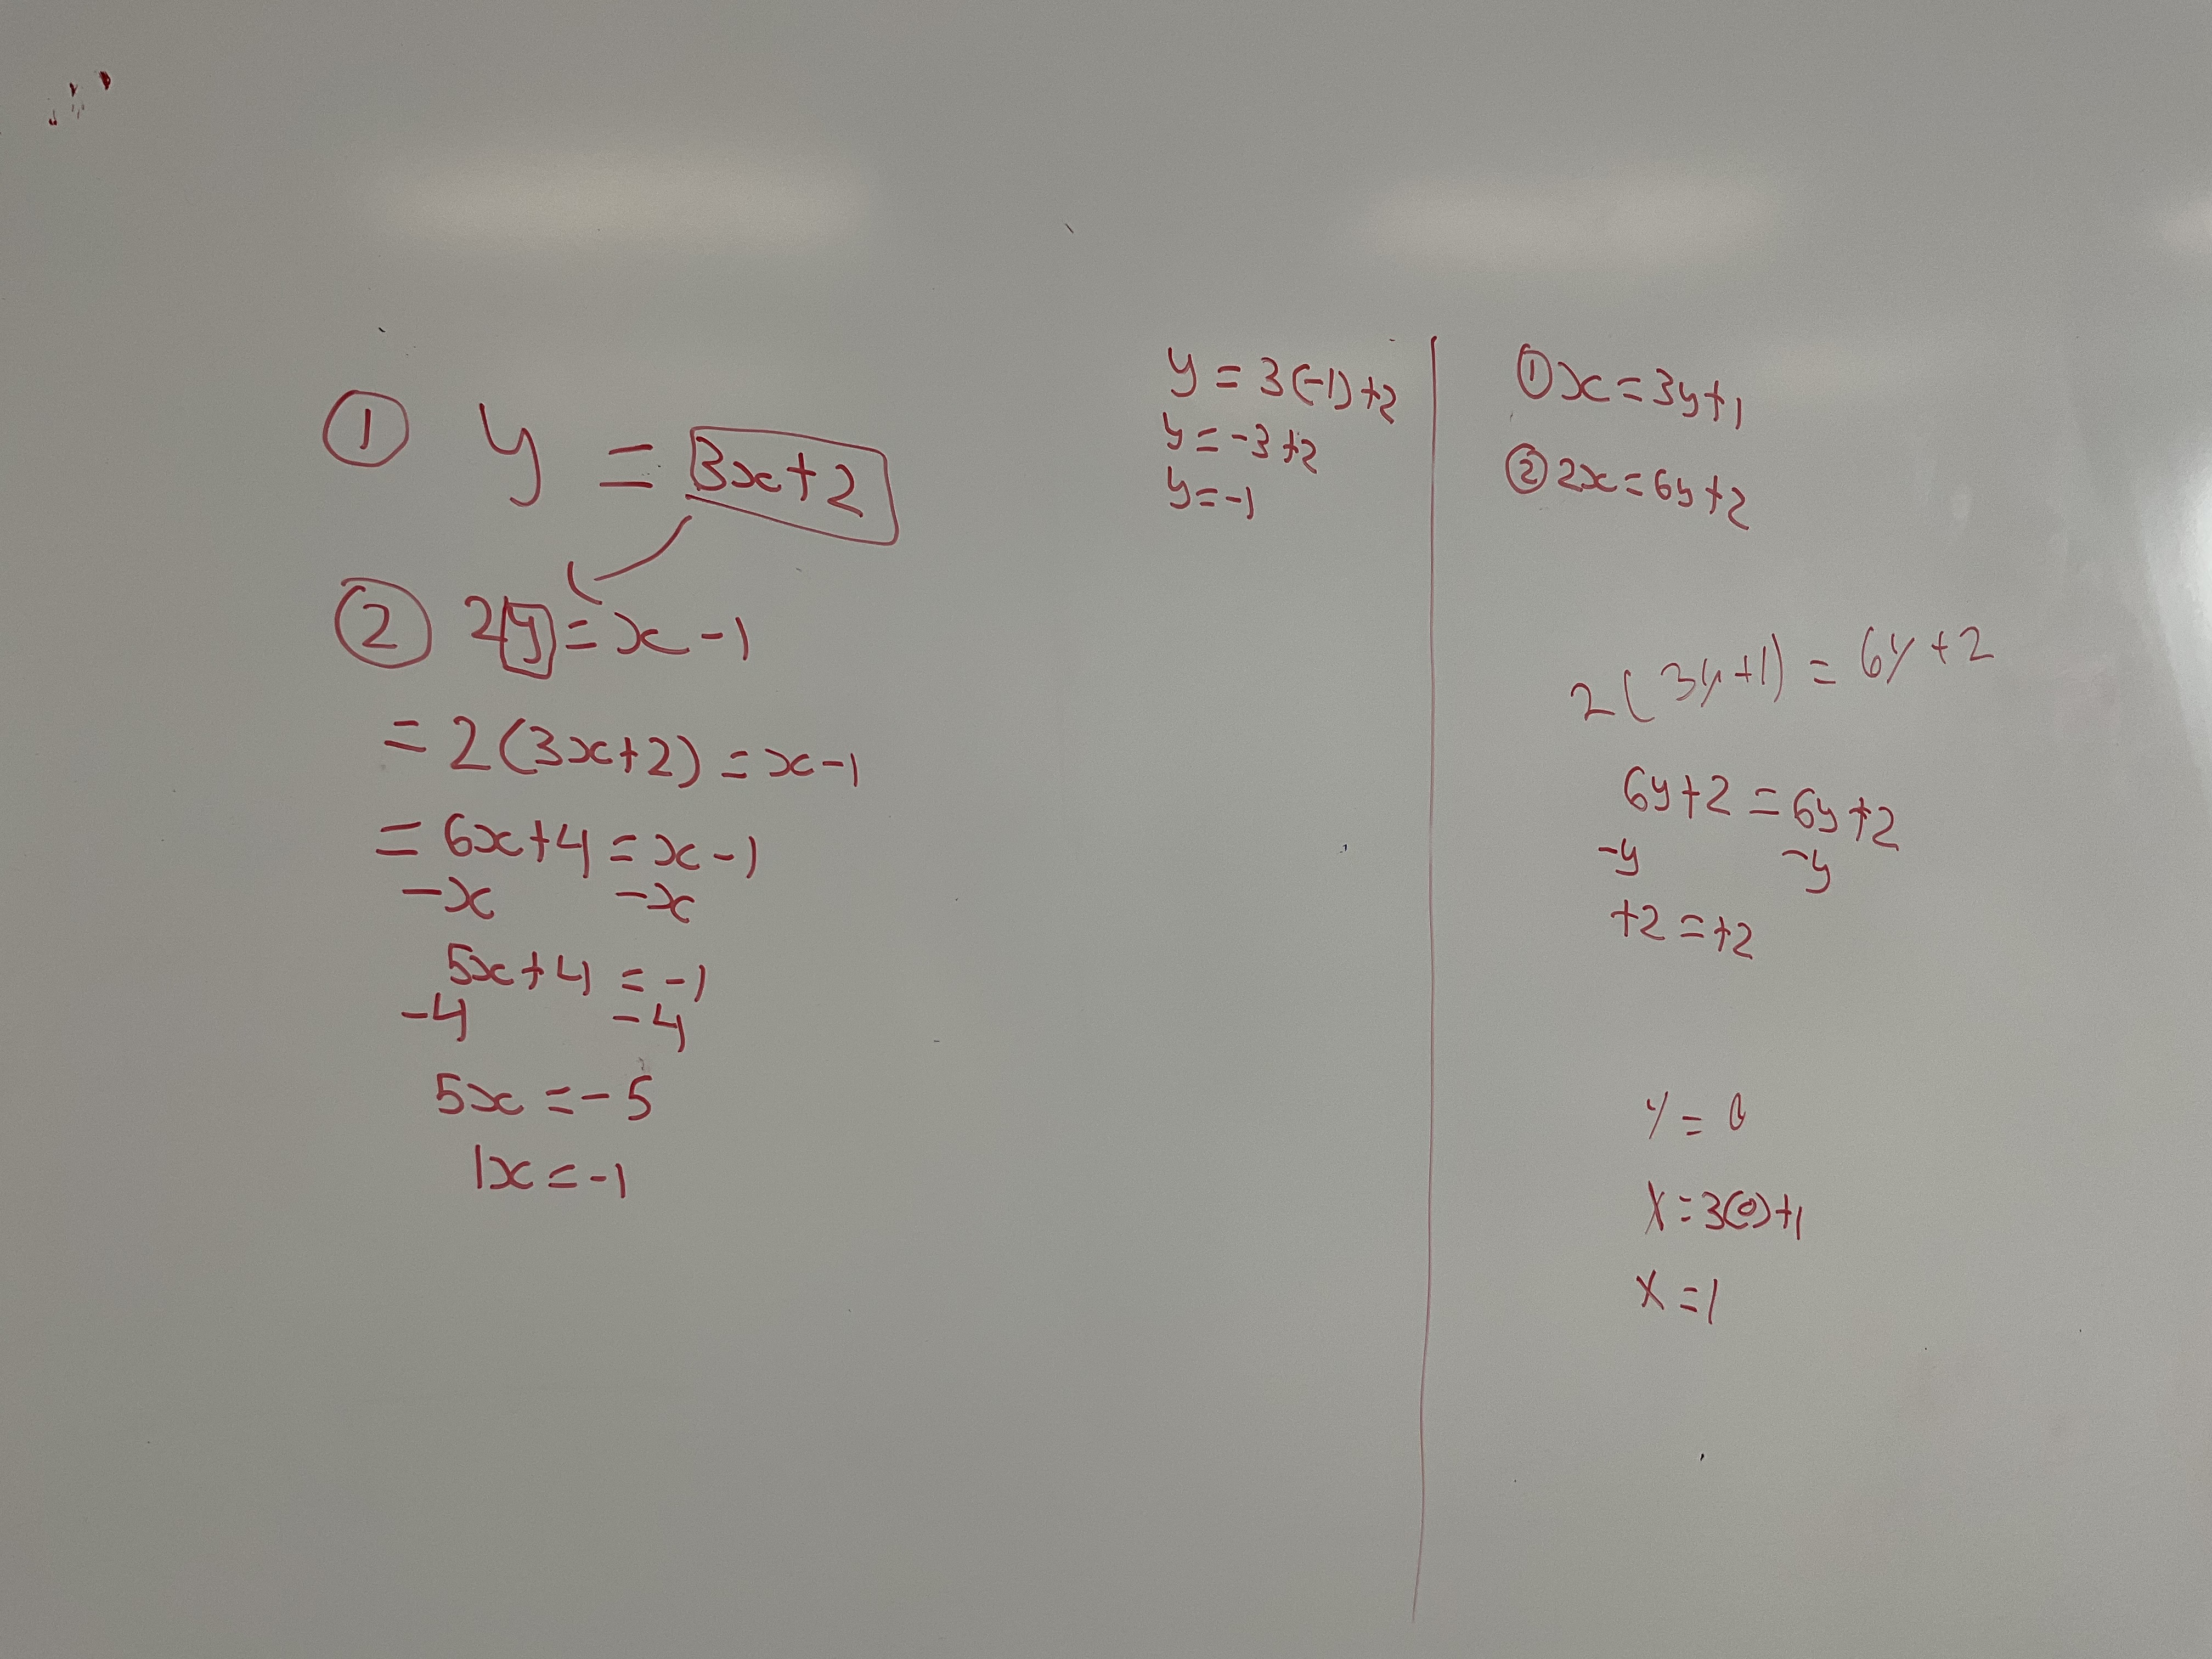 ① y = 3x+2
② 2y = x - 1
= 2(3x+2) = x-1
= 6x+4 = x-1
-x -x
5x+4 = -1
-4 -4
5x = -5
1x = -1
y = 3(-1)+2
y = -3+2
y = -1
① x = 3y+1
② 2x = 6y+2
2(3y+1) = 6y+2
6y+2 = 6y+2
-y -y
+2 = +2
y = 0
x = 3(0)+1
x = 1